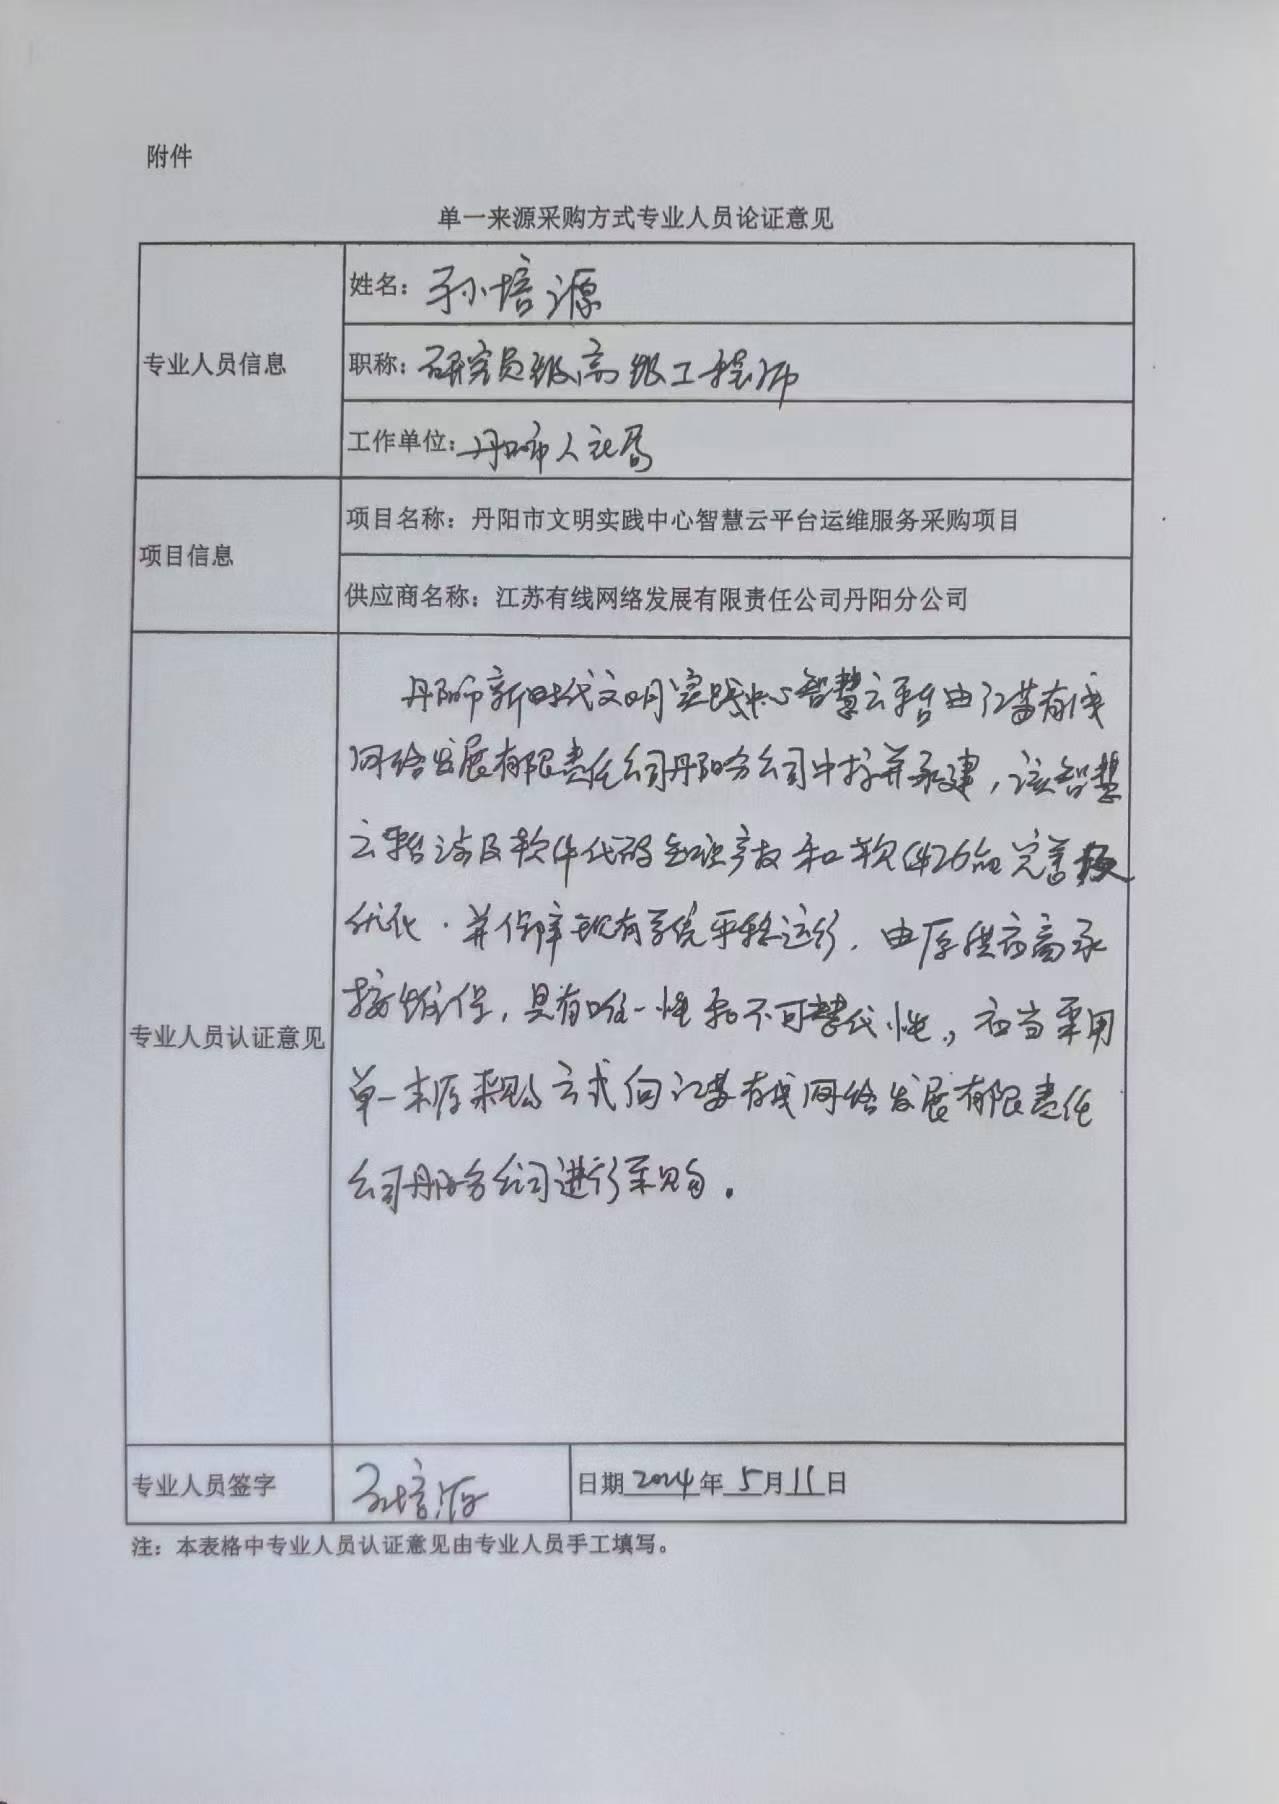 附件
单一来源采购方式专业人员论证意见
专业人员信息
姓名：孙培源
职称：研究员级高级工程师
工作单位：丹阳市人社局
项目信息
项目名称：丹阳市文明实践中心智慧云平台运维服务采购项目
供应商名称：江苏有线网络发展有限责任公司丹阳分公司
专业人员认证意见
丹阳市新时代文明实践中心智慧云平台由江苏有线
网络发展有限责任公司丹阳分公司中标并承建，该智慧
云平台涉及软件代码知识产权和软件功能完善及
优化，并保障现有系统平稳运行，由原供应商承
接维保，具有唯一性和不可替代性，应当采用
单一来源采购方式向江苏有线网络发展有限责任
公司丹阳分公司进行采购。
专业人员签字
孙培源
日期2024年5月11日
注：本表格中专业人员认证意见由专业人员手工填写。